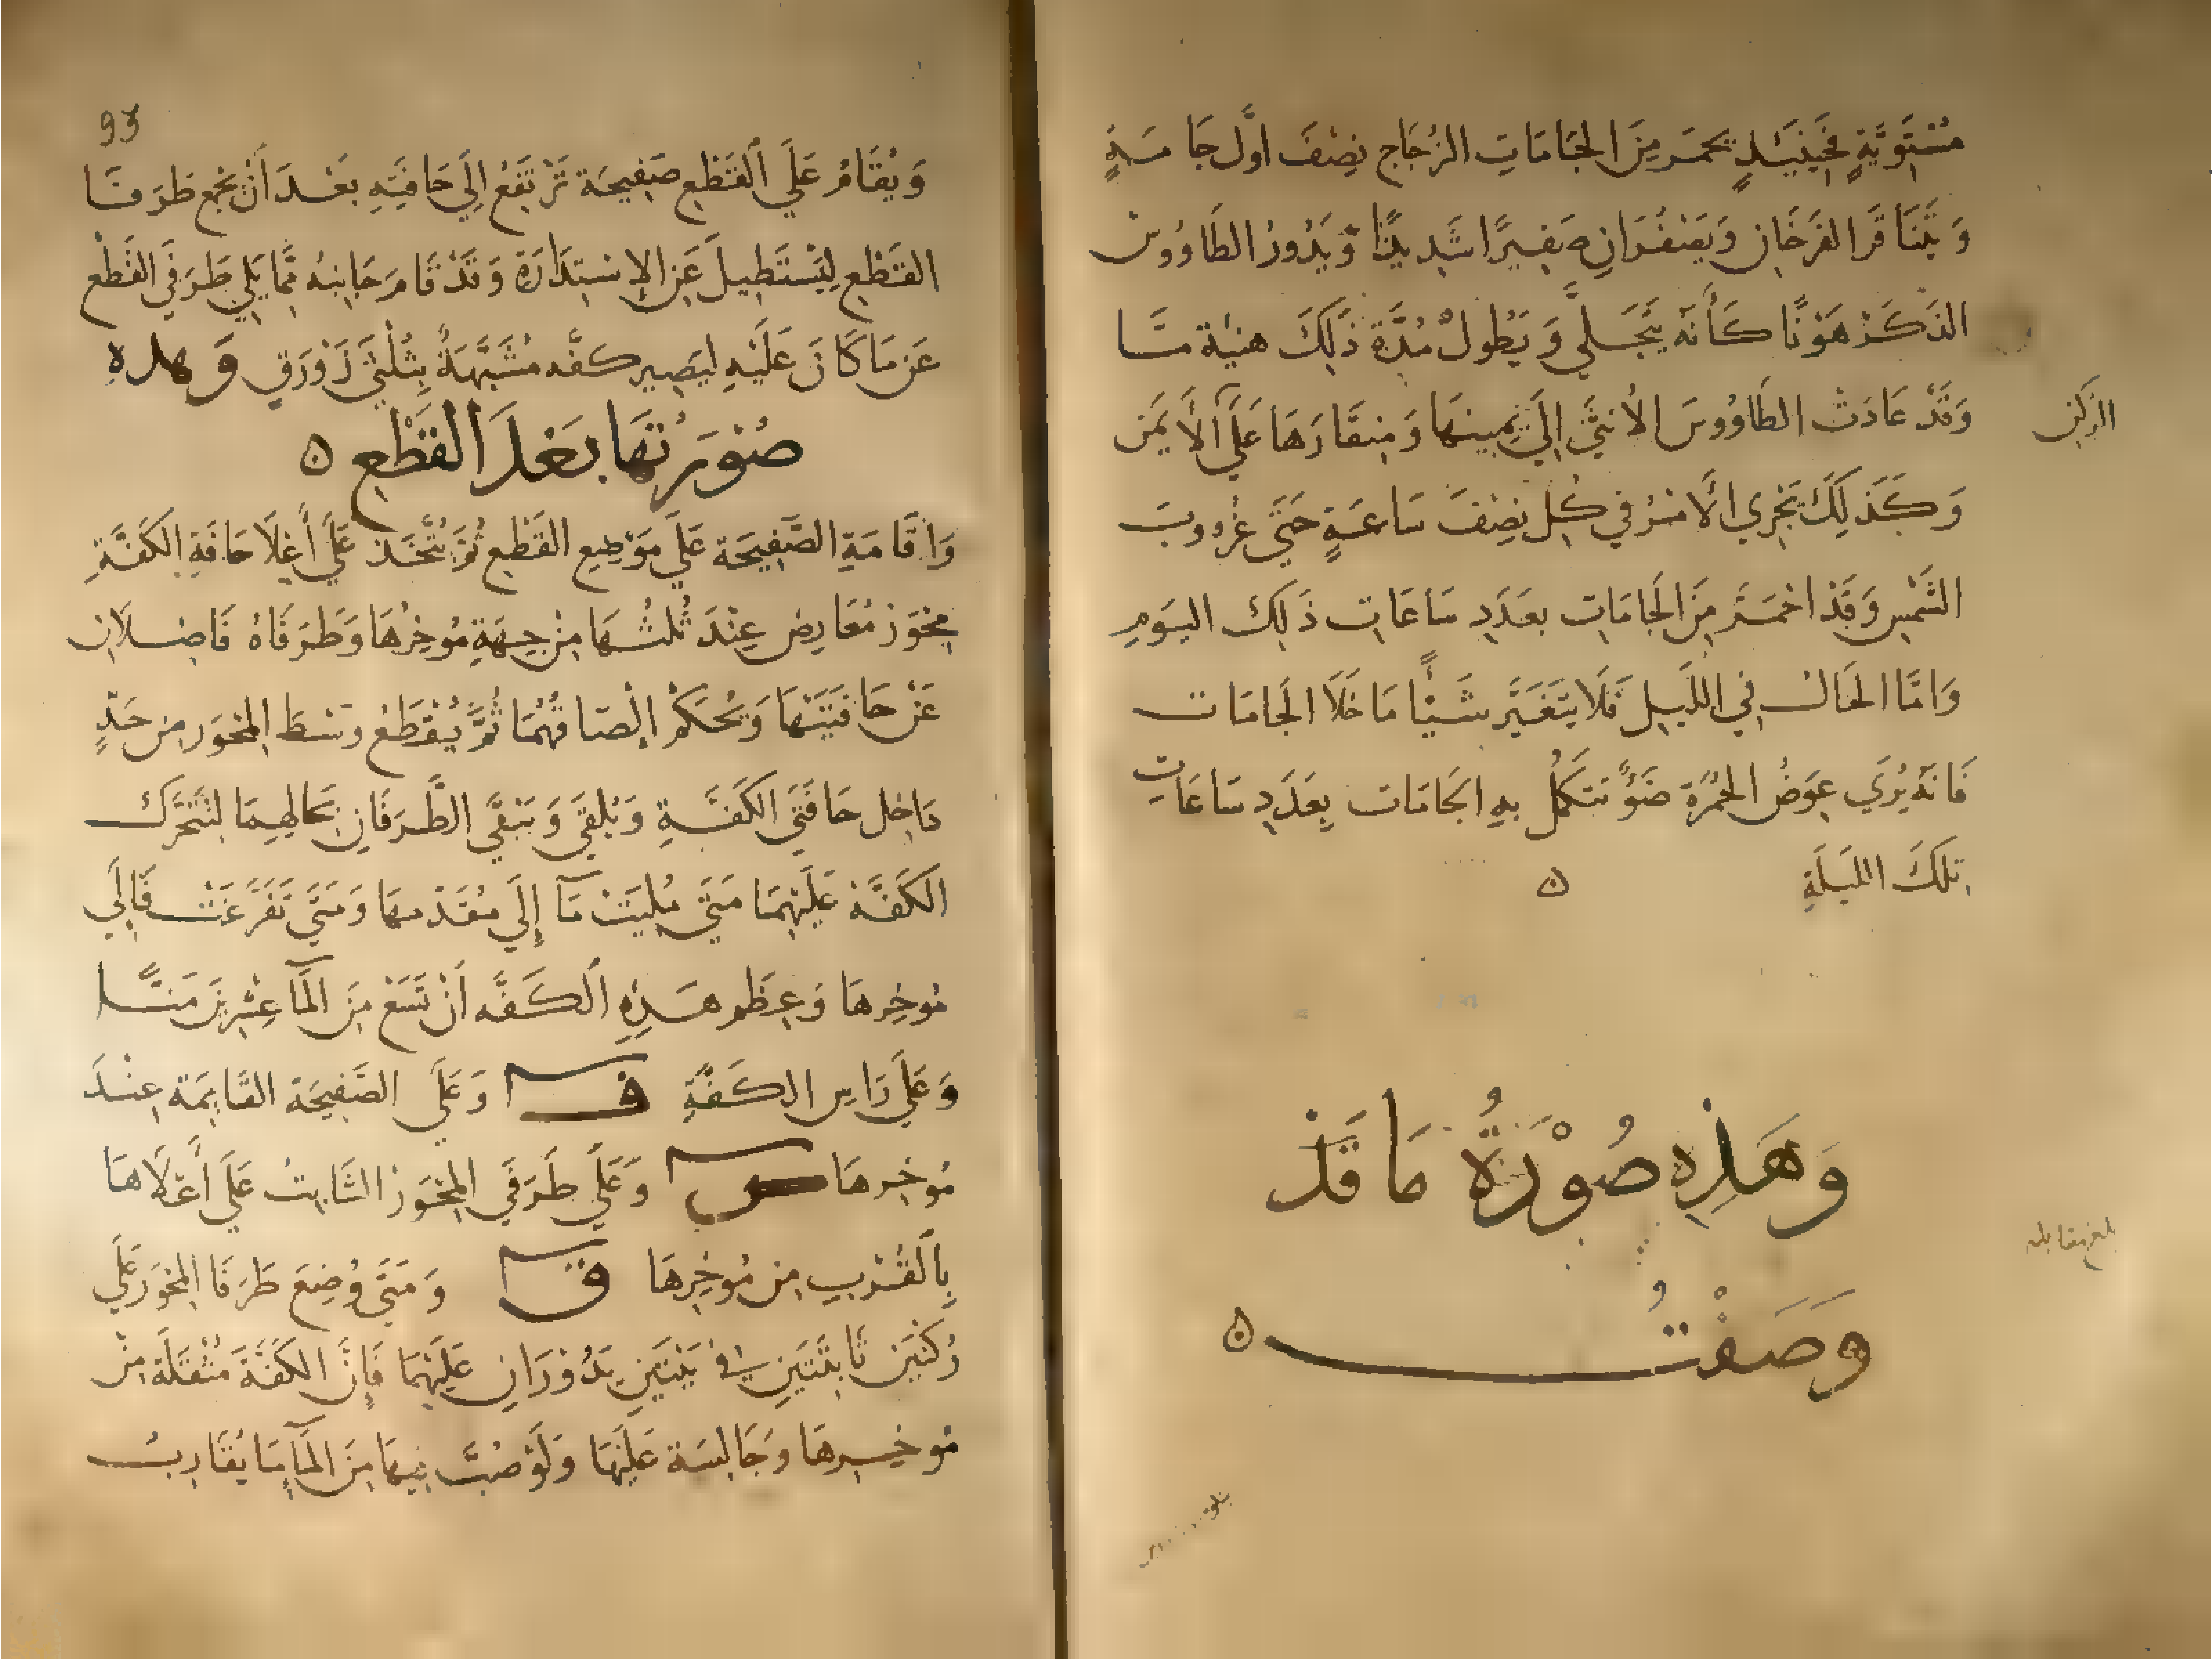 مُسْتَوِيَّةٍ فَحِينَئِذٍ يحمر مِنَ الجَامَاتِ الزُجَاج نِصْفَ اوَّل جَامَةٍ
وَيَتَنَاقَرَ الفَرْخَانِ وَيَصْفُرَانِ صَفِيرًا شَدِيدًا وَيَدُورُ الطَاوُوسْ
الذَكَرْ هَوْنًا كَأَنَّهُ يَتَجَلَّى وَيَطُولُ مُدَّةَ ذَلِكَ هنيْة مَّا
وَقَدْ عَادَتْ الطَاوُوسَ الأُنثَى إلَى يَمِينهَا وَمِنقَارَهَا عَلَى الأَيمَن
الركن
وَكَذَلِكَ يَجْرِي الأَمْرُ فِي كُلِ نِصْفَ سَاعَةٍ حَتَّى غرُوبَ
الشَمْسِ وَقَدْ احْمَرَّ مِنَ الجَامَاتِ بعَدَدِ سَاعَاتِ ذَلِكَ اليَومِ
وَامَّا الحَالُ فِي اللَيلِ فَلَا يَتَغَيَّر شَيْئًا مَا خَلَا الجَامَات
فَانَهُ يُرَى عِوَضُ الحُمْرَة ضَوْءٌ تتكَمَّلُ بهِ الجَامَات بِعَدَدِ سَاعَاتِ
تِلكَ اللَيلَةِ ه
وَهَذِهِ صُوْرَةُ مَا قَدْ
وَصَفْتُ ه
بلغ مقابله
93
وَيُقَامُ عَلَى القَطْعِ صَفِيحَة تَرْتَفِعُ إلَى حَافَتِهِ بَعْدَ أَنْ يُجْمَع طَرَفَا
القَطْعِ لِيَسْتَطِيلَ عَنِ الإسْتِدَارَةِ وَقَدْ قَامَ جَانِبَهُ مِمَّا يَلِي طَرَفَي القَطْعِ
عَنْ مَا كَانَ عَلَيْهِ لِيَصِير كَفَّه مُشَبَّهَةٌ بِثُلْثَي زَوْرَقٍ وَهذهِ
صُوْرَتُهَا بَعْدَ القَطْعِ ه
وَاقَامَةِ الصَّفِيحَة عَلَى مَوْضِعِ القَطْعِ ثُمَّ يُتَّخَذ عَلَى أَعْلَا حَافَةِ الكَفَّةِ
مِحْوَرْ مُعَارِض عِنْدَ ثُلثُهَا مِنْ جِهَةِ مُوخِرْهَا وَطَرَفَاهُ فَاضِلَانِ
عَنْ حَافَتَيْهَا وَيُحْكَمْ إلْصَاقُهُمَا ثُمَّ يُقْطَعْ وَسْطَ المِحْوَرِ مِن حَدٍّ
دَاخِل حَافَتَي الكَفَّةِ وَيُلْقَى وَيَبْقَى الطَّرَفَانِ بحَالِهِمَا لتَتَحَرَّك
الكَفَّة عَلَيْهِمَا مَتَى مُلِيَتْ مَآ إلَى مُقَدْمهَا وَمَتَى تَفَرَّغَتْ فَإلَى
مُوخِرهَا وَعِظَم هَذِهِ الكَفَّه أَنْ تَسَعْ مِنَ المَآ عِشْرِينَ مَنًّا
وَعَلَى رَاسِ الكَفَّةِ ف وَعَلَى الصَفِيحَة القَايِمَة عِنْدَ
مُوخِرهَا س وَعَلَى طَرَفَي المِحْوَرْ الثَابِتُ عَلَى أَعْلَاهَا
بِالقُرْبِ مِن مُوخِرِهَا ق وَمَتَى وُضِعَ طَرَفَا المِحْوَر عَلَى
رُكْنَين ثَابِتَتَينِ في بَيْتَيْنِ يَدُوْرَانِ عَلَيْهِمَا فَإنَّ الكَفَّةَ مُثْقَلَة مِنْ
مُوخِرهَا وجَالِسَة عَلَيْهَا وَلَوْ صُبَّ فِيهَا مِنَ المَآ مَا يُقَارِبُ